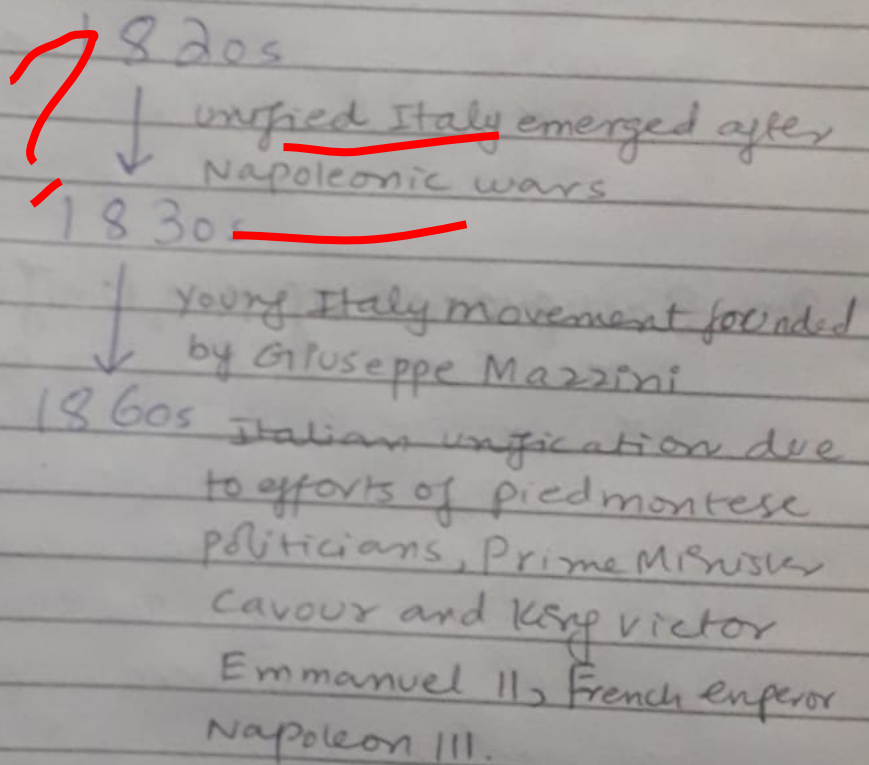 1820s
unified Italy emerged after
Napoleonic wars
1830s
Young Italy movement founded
by Giuseppe Mazzini
1860s Italian unification due
to efforts of piedmontese
politicians, Prime Minister
Cavour and King victor
Emmanuel II, French enperor
Napoleon III.